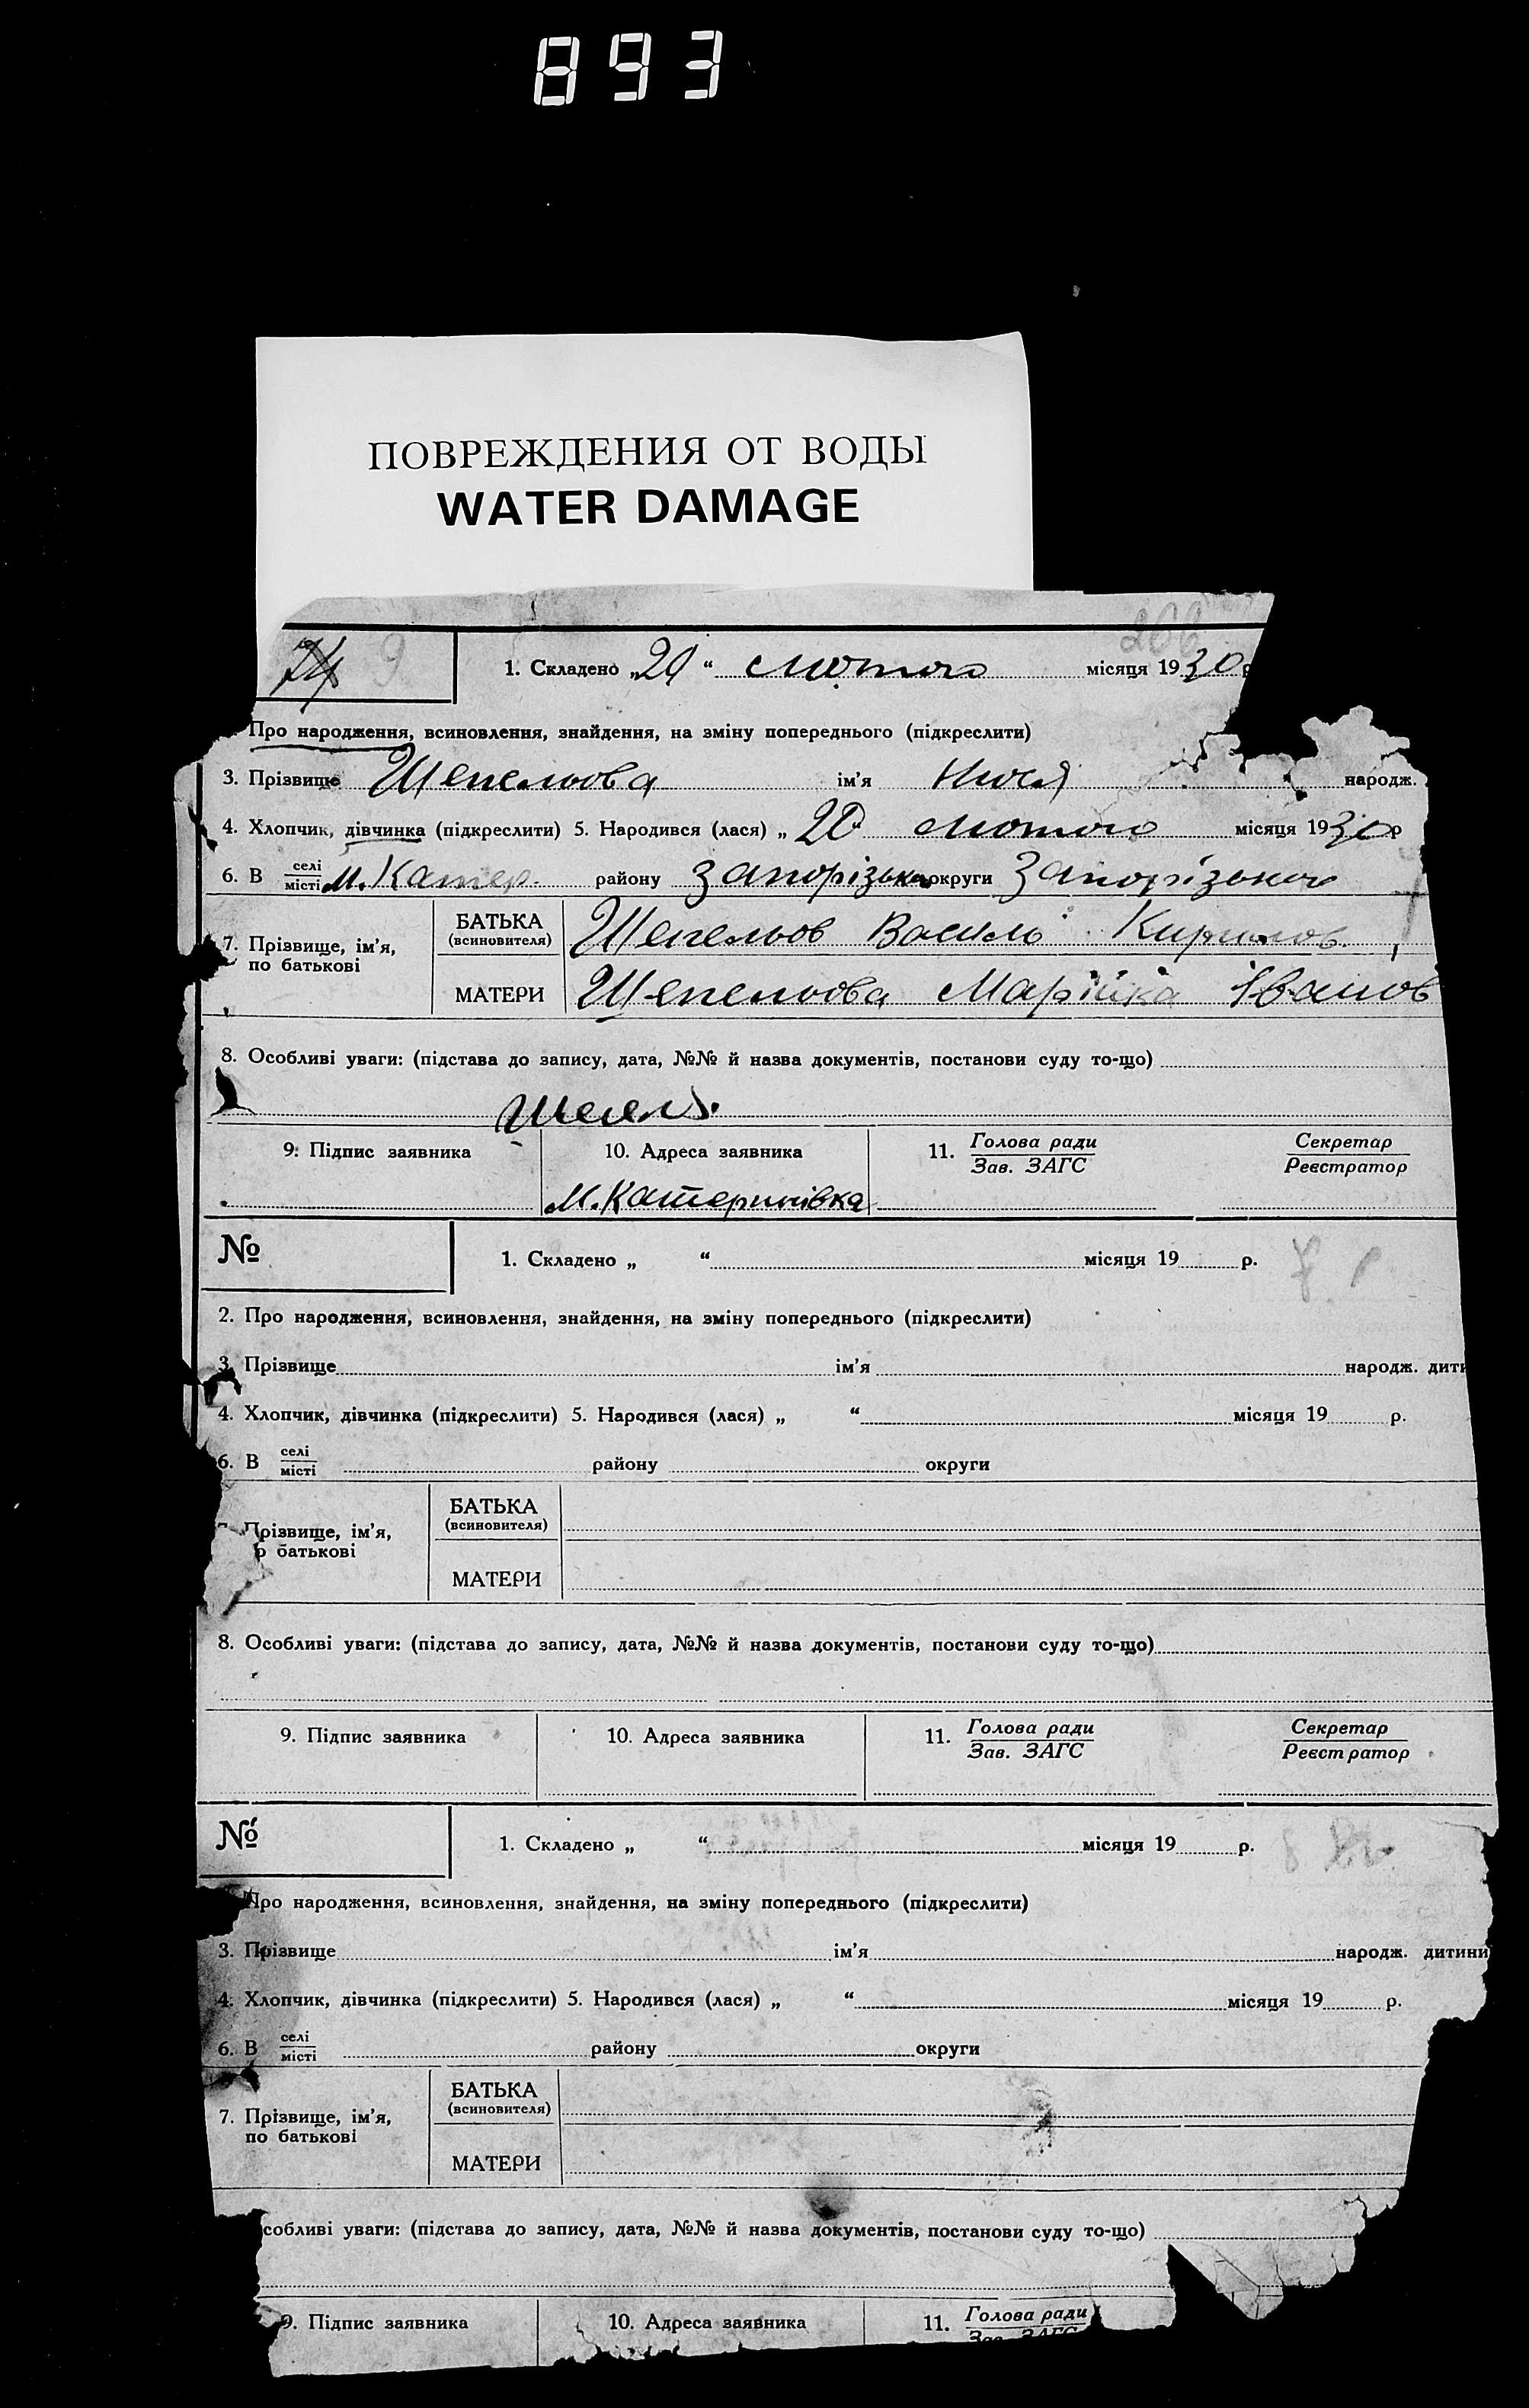 893
ПОВРЕЖДЕНИЯ ОТ ВОДЫ
WATER DAMAGE
206
74 9 1. Складено „ 20 “ лютого місяця 1930 р
Про народження, всиновлення, знайдення, на зміну попереднього (підкреслити)
3. Прізвище Шепельова ім'я Нюся народж.
4. Хлопчик, дівчинка (підкреслити) 5. Народився (лася) „ 20 лютого місяця 1930 р
6. В селі місті М. Катер. району Запорізьк округи Запорізької
7. Прізвище, ім'я, по батькові БАТЬКА (всиновителя) Шепельов Василь Кирилов.
МАТЕРИ Шепельова Марійка Іванов
8. Особливі уваги: (підстава до запису, дата, №№ й назва документів, постанови суду то-що)
9. Підпис заявника 10. Адреса заявника 11. Голова ради Зав. ЗАГС Секретар Реєстратор
М. Катеринівка
№ 1. Складено „ “ місяця 19 р. 7
2. Про народження, всиновлення, знайдення, на зміну попереднього (підкреслити)
3. Прізвище ім'я народж. дити
4. Хлопчик, дівчинка (підкреслити) 5. Народився (лася) „ “ місяця 19 р.
6. В селі місті району округи
Прізвище, ім'я, о батькові БАТЬКА (всиновителя)
МАТЕРИ
8. Особливі уваги: (підстава до запису, дата, №№ й назва документів, постанови суду то-що)
9. Підпис заявника 10. Адреса заявника 11. Голова ради Зав. ЗАГС Секретар Реєстратор
№ 1. Складено „ “ місяця 19 р. 8
Про народження, всиновлення, знайдення, на зміну попереднього (підкреслити)
3. Прізвище ім'я народж. дитини
4. Хлопчик, дівчинка (підкреслити) 5. Народився (лася) „ “ місяця 19 р.
6. В селі місті району округи
7. Прізвище, ім'я, по батькові БАТЬКА (всиновителя)
МАТЕРИ
собливі уваги: (підстава до запису, дата, №№ й назва документів, постанови суду то-що)
9. Підпис заявника 10. Адреса заявника 11. Голова ради Зав. ЗАГС